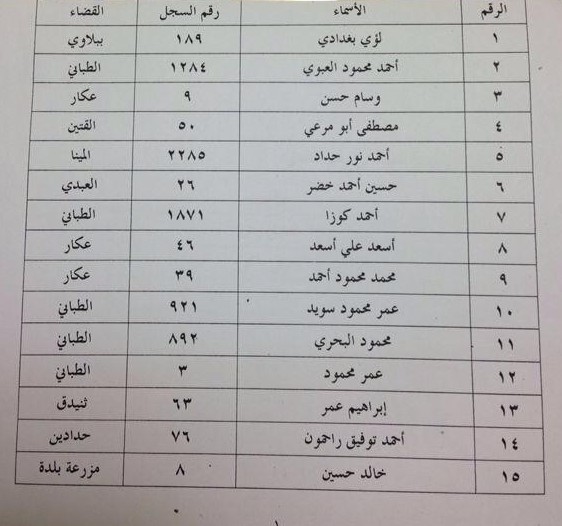 الرقم الأسماء رقم السجل القضاء
١ لؤي بغدادي ١٨٩ ببلاوي
٢ أحمد محمود العبوي ١٢٨٤ الطباني
٣ وسام حسن ٩ عكار
٤ مصطفى أبو مرعي ٥٠ القتين
٥ أحمد نور حداد ٢٢٨٥ المينا
٦ حسين أحمد خضر ٢٦ العبدي
٧ أحمد كوزا ١٨٧١ الطباني
٨ أسعد علي أسعد ٤٦ عكار
٩ محمد محمود أحمد ٣٩ عكار
١٠ عمر محمود سويد ٩٢١ الطباني
١١ محمود البحري ٨٩٢ الطباني
١٢ عمر محمود ٣ الطباني
١٣ إبراهيم عمر ٦٣ ثنيدق
١٤ أحمد توفيق راحمون ٧٦ حدادين
١٥ خالد حسين ٨ مزرعة بلدة
١